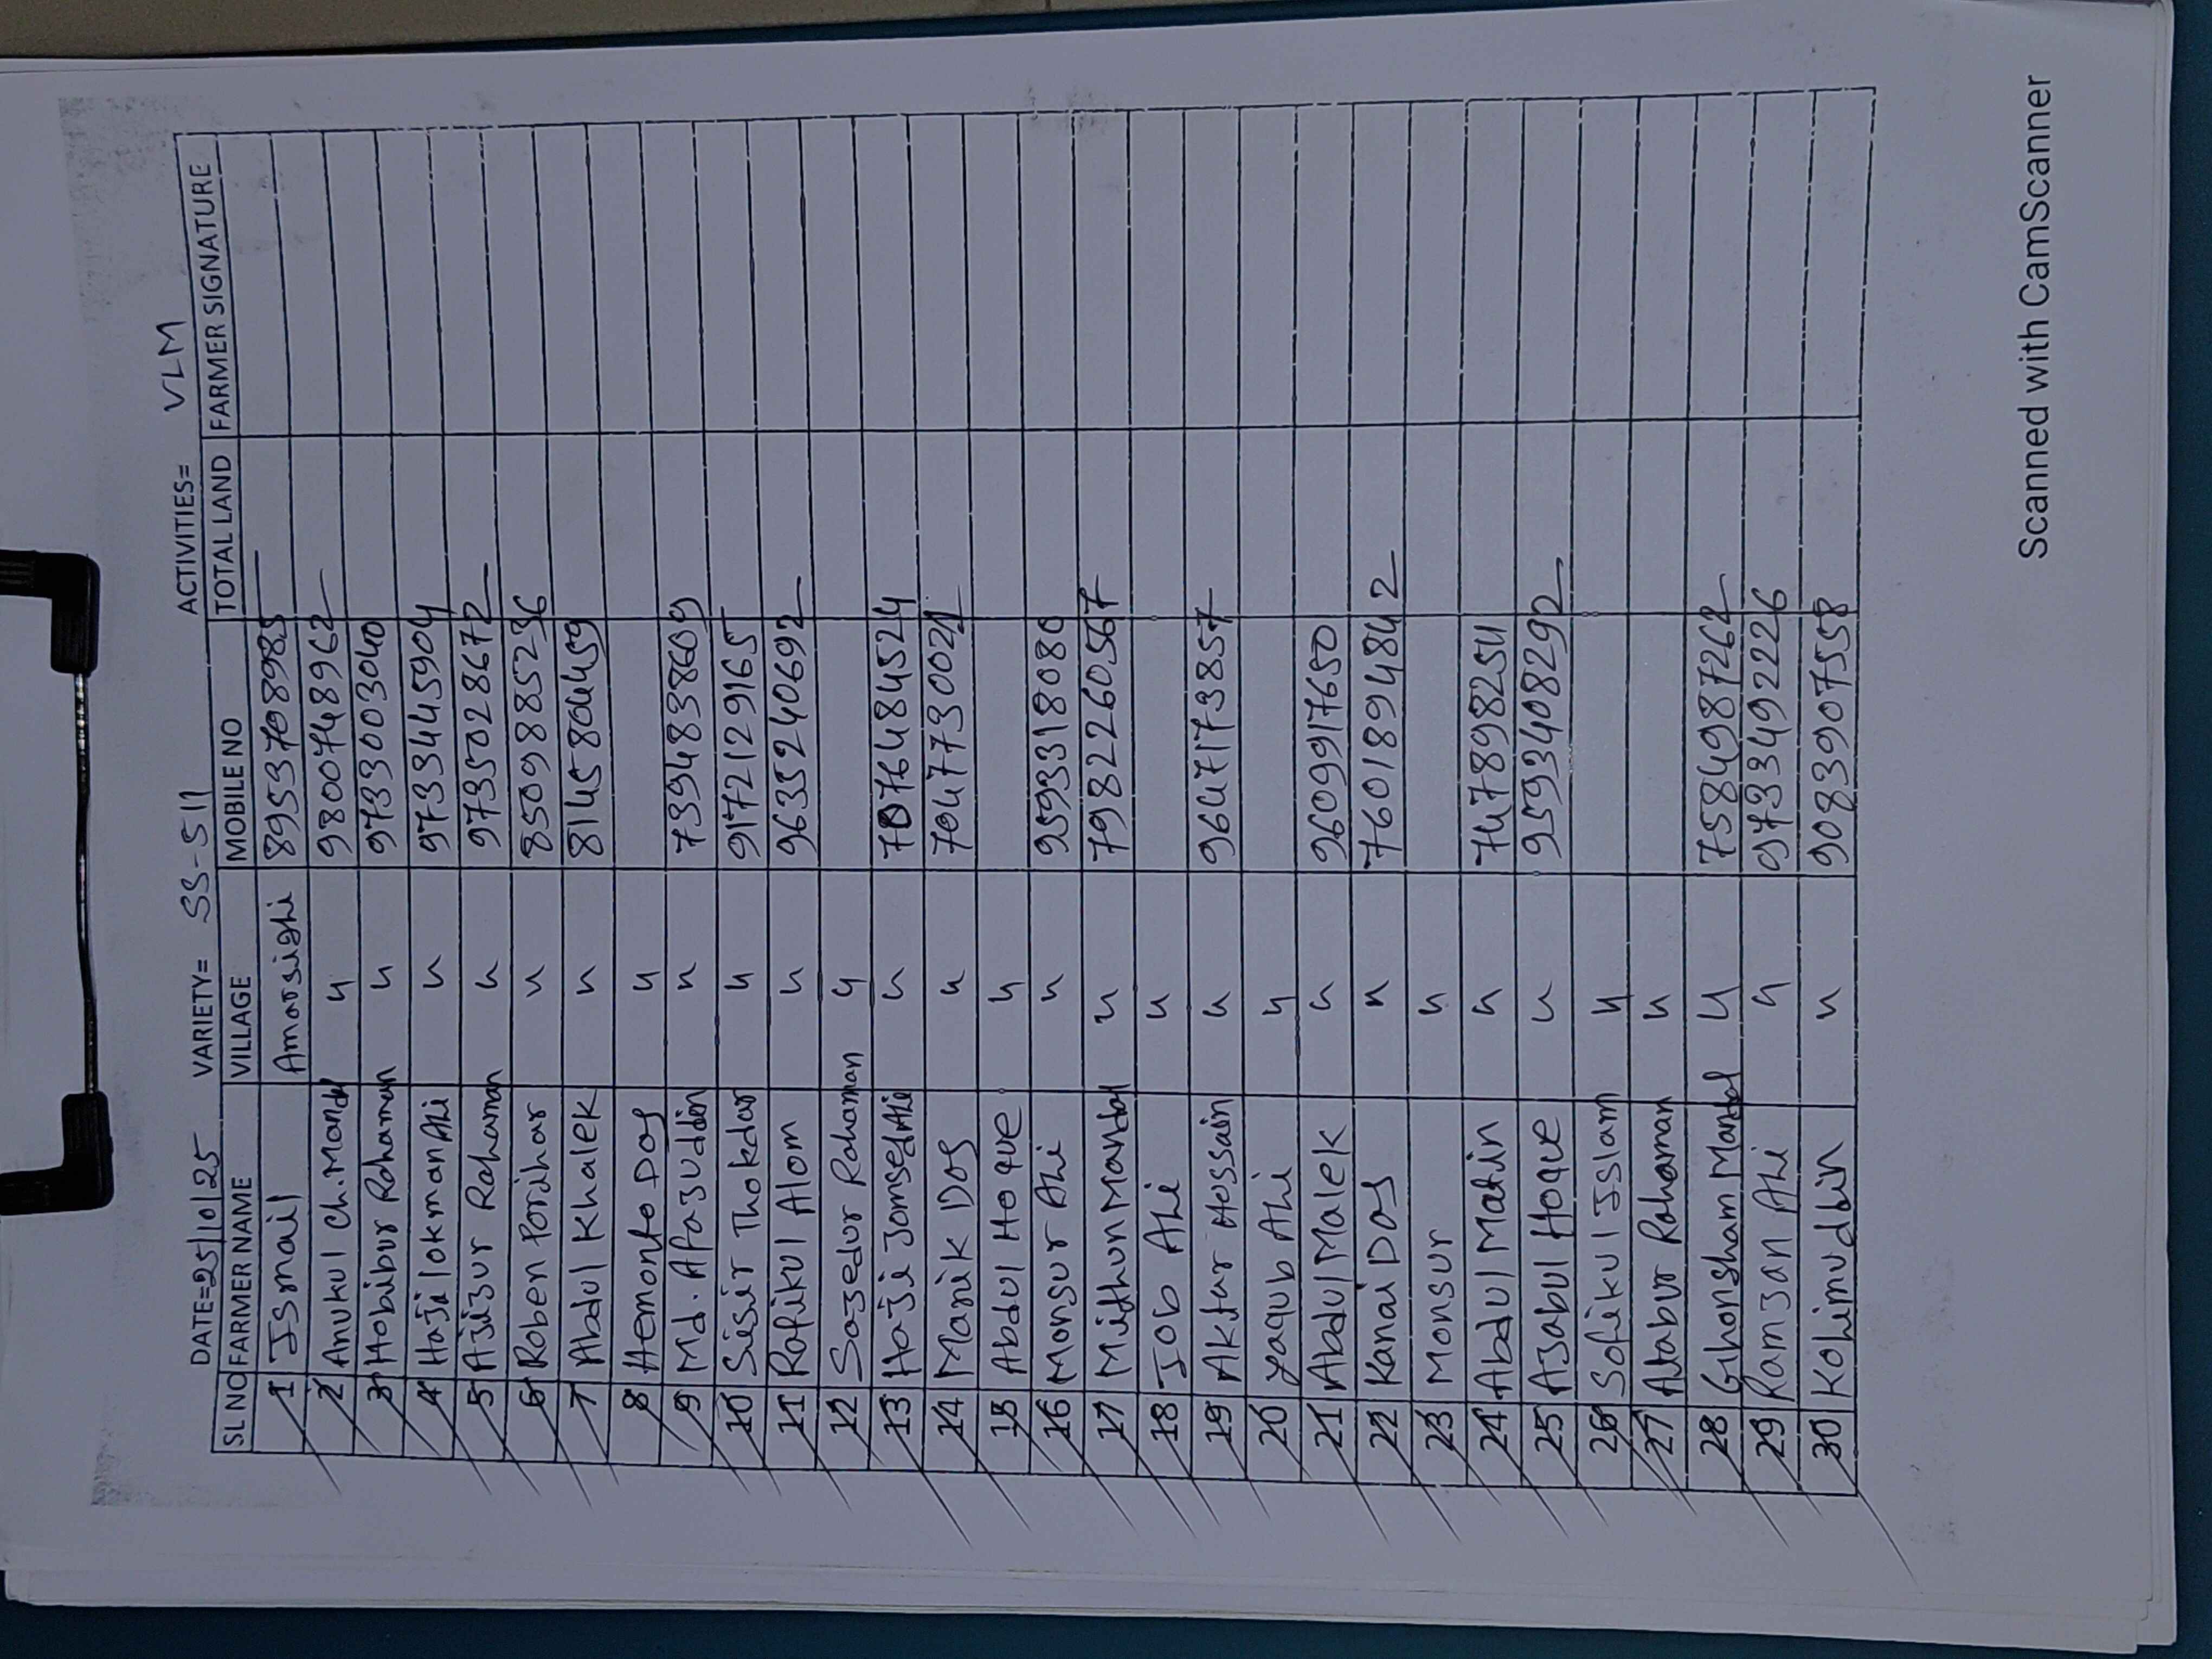 DATE=25/10/25 VARIETY= SS-511 ACTIVITIES= VLM
SL NO FARMER NAME VILLAGE MOBILE NO TOTAL LAND FARMER SIGNATURE
1 Ismail Amorsighi 8953708985 —
2 Anukul Ch. Mondal " 9800748962
3 Hobibur Rahaman " 9733003040
4 Haji lokman Ali " 9733445904
5 Ajizur Rahaman " 9735028672
6 Roben Porihar " 8509885236
7 Abdul Khalek " 8145804459
8 Hemonto Das "
9 Md. Afazuddin " 7394838609
10 Sisir Thokdar " 9172129165
11 Rofikul Alom " 9635240692
12 Sazedur Rahaman "
13 Haji Jomsed Ali " 7076484524
14 Manik Das " 7047730021
15 Abdul Hoque "
16 Monsur Ali " 9593318080
17 Mithun Mandal " 7982260567
18 Job Ali "
19 Aktar Hossain " 9647173857
20 Yaqub Ali "
21 Abdul Malek " 9609917650
22 Kanai Das " 7601894842
23 Monsur "
24 Abdul Matin " 747898254
25 Azabul Hoque " 9593408292
26 Sofikul Islam "
27 Atabur Rahaman "
28 Ghonsham Mandal " 7584987262
29 Ramjan Ali " 9733492226
30 Kohimuddin " 9083907558
Scanned with CamScanner